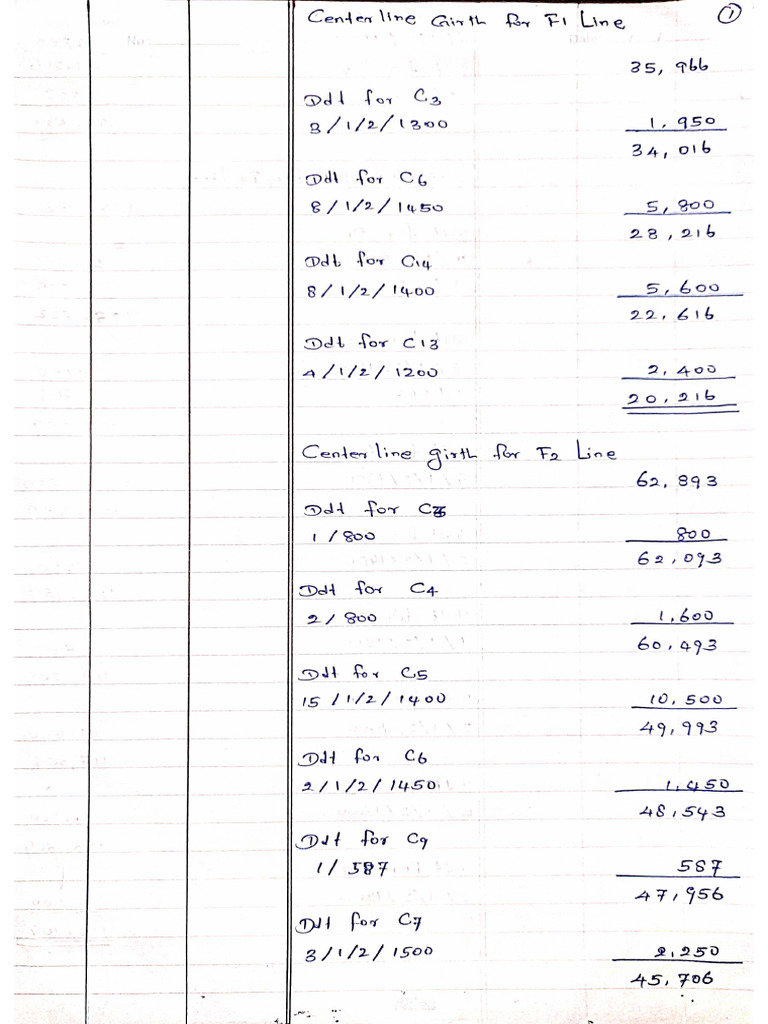 Centerline Girth for F1 Line ①
35,966
Ddt for C3
3/1/2/1300 1,950
34,016
Ddt for C6
8/1/2/1450 5,800
28,216
Ddt for C14
8/1/2/1400 5,600
22,616
Ddt for C13
4/1/2/1200 2,400
20,216
Centerline girth for F2 Line
62,893
Ddt for
1/800 800
62,093
Ddt for C4
2/800 1,600
60,493
Ddt for C5
15/1/2/1400 10,500
49,993
Ddt for C6
2/1/2/1450 1,450
48,543
Ddt for C9
1/587 587
47,956
Ddt for C7
3/1/2/1500 2,250
45,706